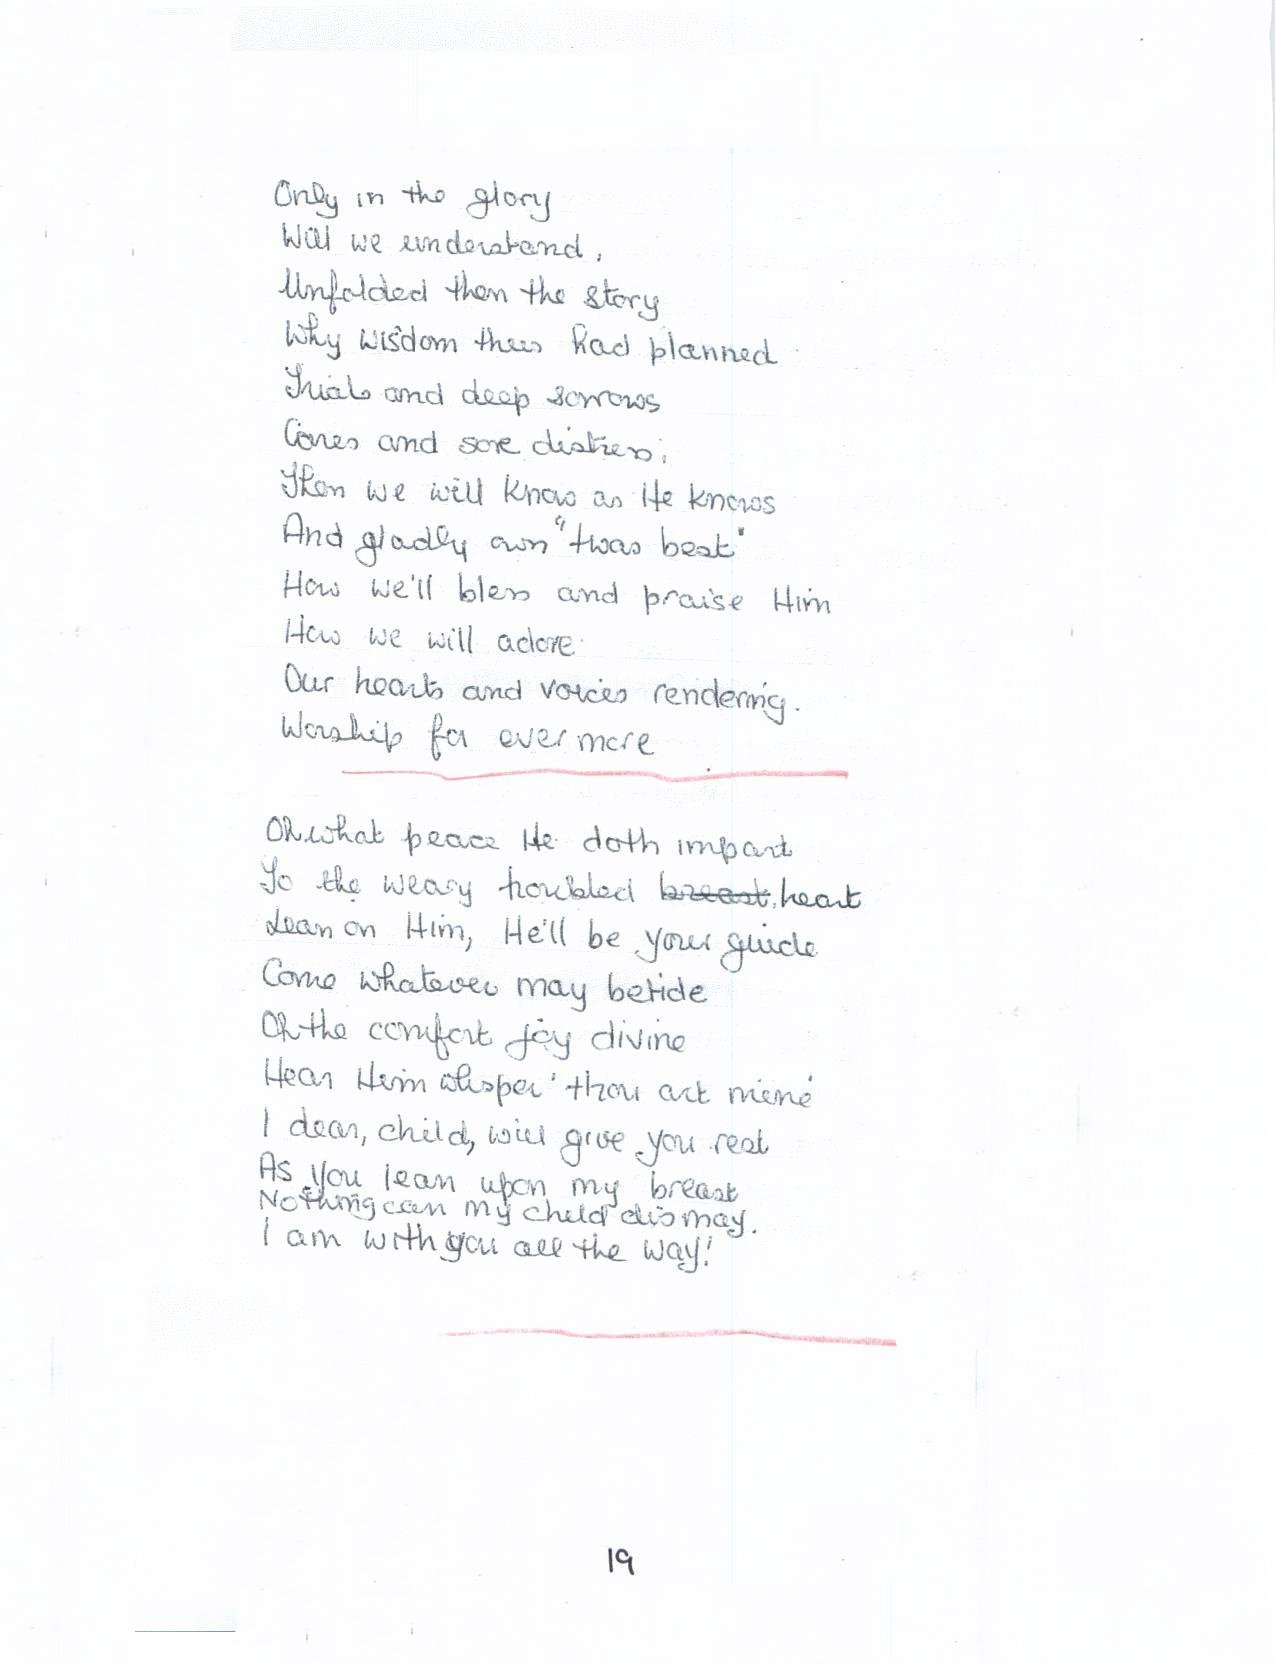 Only in the glory
Will we understand,
Unfolded then the story
Why wisdom thus had planned
Trials and deep sorrows
Cares and sore distress;
Then we will know as He knows
And gladly own "twas best"
How we'll bless and praise Him
How we will adore
Our hearts and voices rendering.
Worship for ever more
Oh what peace He doth impart
To the weary troubled breast, heart
Lean on Him, He'll be your guide
Come whatever may betide
Oh the comfort joy divine
Hear Him whisper 'thou art mine'
I dear, child, will give you rest
As you lean upon my breast
Nothing can my child dismay.
I am with you all the way!
19